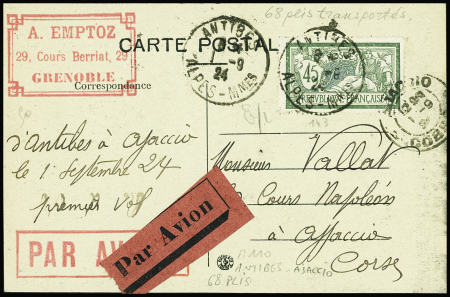 68 plis transportés.
A. EMPTOZ
29, Cours Berriat, 29
GRENOBLE
CARTE POSTAL
Correspondance
ANTIBES
1 -9
24
ALPES-MMES
ANTIBES
ALPES-MMES
45
REPUBLIQUE FRANÇAISE
AJACCIO
CORSE
143
d'Antibes à Ajaccio
le 1 Septembre 24
premier vol
Monsieur Vallat
Cours Napoléon
à Ajaccio
Corse
PAR AV
Par Avion
ANTIBES - AJACCIO
68 PLIS